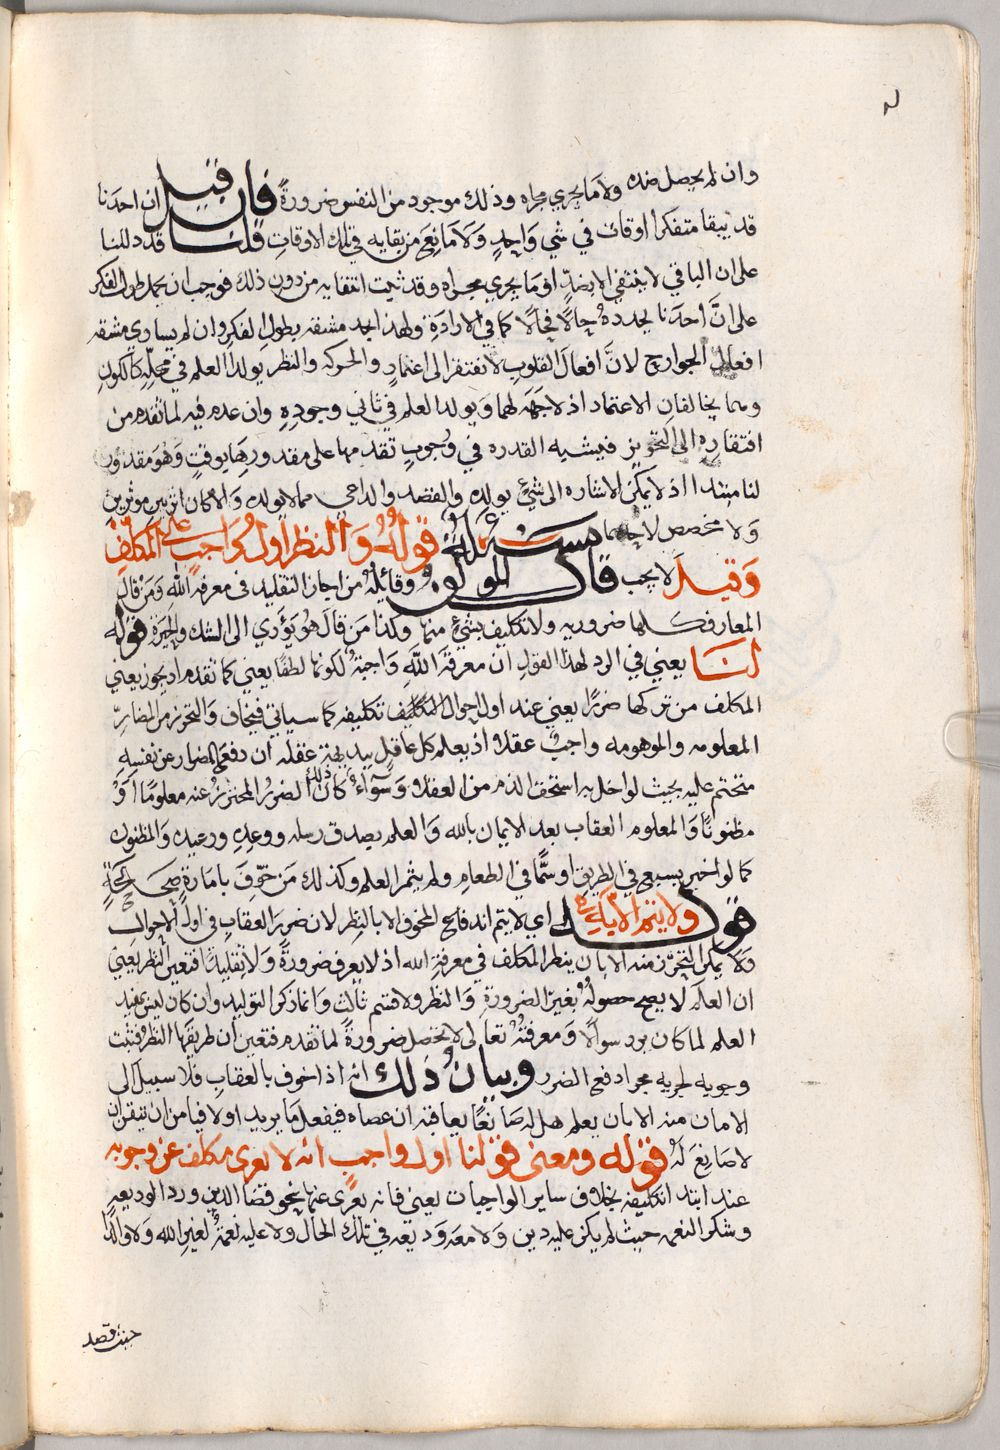 وان لم يحصل ضده ولا ما يجري مجراه وذلك موجود من النفس ضرورةً فان قيل ان احدنا
قد يبقا متفكرا اوقات في شي واحدٍ ولا مانع من بقايه في تلك الاوقات قلنا قد دللنا
على ان الباقي لا ينتفي الا بضدٍّ او ما يجري مجراه وقد ثبت انتفايه من دون ذلك فوجب ان يحمل طول الفكر
على انَّ احدنا يجدده حالًا فحالًا كما في الارادةِ ولهذا يجد مشقه بطول الفكر وان لم يساوي مشقه
افعال الجوارح لانَّ افعال القلوب لا تفتقر الى اعتمادٍ والحركه والنظر يولد العلم في محلّهِ كالكون
وهما يخالفان الاعتماد اذ لا جهه لهما ويولد العلم في ثاني وجودِهِ وان عدم فيه لما تقدم من
افتقاره الى التجويز فيشبه القدره في وجوبِ تقدمها على مقدورها بوقتٍ وهو مقدور
لنا مبتدا اذ لا يمكن الاشاره الى شيءٍ يولده والقصد والداعي مما لا يولده والا لكان اثر بين موثرين
ولا مخصص لاحدهما مسئلة قوله والنظر اول واجب على المكلف
وقيل لا يجب قال المولى وقائله من اجاز التقليد في معرفة الله ومن قال
المعارف كلها ضروريه ولا تكليف بشيءٍ منها وكذا من قال هو يؤدي الى الشك والحيرة قوله
لنا يعني في الرد لهذا القول ان معرفة الله واجبةٌ لكونها لطفًا يعني كما تقدم اذ يجوز يعني
المكلف من تركها ضررًا يعني عند اول احوال التكليف تكليفه كما سياتي فيخاف والتحرز من المضارِّ
المعلومه والموهومه واجبٌ عقلا اذ يعلم كل عاقلٍ ببديهة عقله ان دفع المضار عن نفسه
متحتم عليه بحيث لو اخل به استحق الذم من العقلا وسواءٌ كان ذلك الضرر المحترز عنه معلومًا او
مظنونًا والمعلوم العقاب بعد الايمان بالله والعلم بصدق رسله ووعدِهِ ووعيده والمظنون
كما لو اخبر بسبع في الطريق او سمًّا في الطعام ولم يثمر العلم وكذلك من خوّف بامارةٍ صحيحةٍ
قوله ولا يتم الا به اي لا يتم اندفاع المخوف الا بالنظر لان ضرر العقاب في اول الاحوال
ولا يمكن التحرّز منه الا بان ينظر المكلف في معرفة الله اذ لا يعرف ضرورةً ولا تقليدًا فتعين النظر يعني
ان العلم لا يصح حصولُهُ بغير الضرورة والنظر ولا قسم ثالث وانما ذكر التوليد وان كان ليس بمفيد
العلم لما كان يرد سوالًا ومعرفتهُ تعالى لا تحصل ضرورةً لما تقدم فتعين ان طريقها النظر فثبت
وجوبه لجريه مجرا دفع الضرر وبيان ذلك انه اذا خوف بالعقاب فلا سبيل الى
الامان منه الا بان يعلم هل له صانعًا يعاقبه ان عصاه فيفعل ما يريد او لا فيامن ان تيقن ان
لا صانع له قوله ومعنى قولنا اول واجبٍ انه لا يعرى مكلف عن وجوبه
عند ابتدا تكليفه بخلاف ساير الواجبات يعني فانه يعرى عنها نحو قضا الدين ورد الوديعه
وشكر النعمه حيث لم يكن عليه دين ولا معه وديعه في تلك الحال ولا عليه نعمةٌ لغير الله ولا والدًا